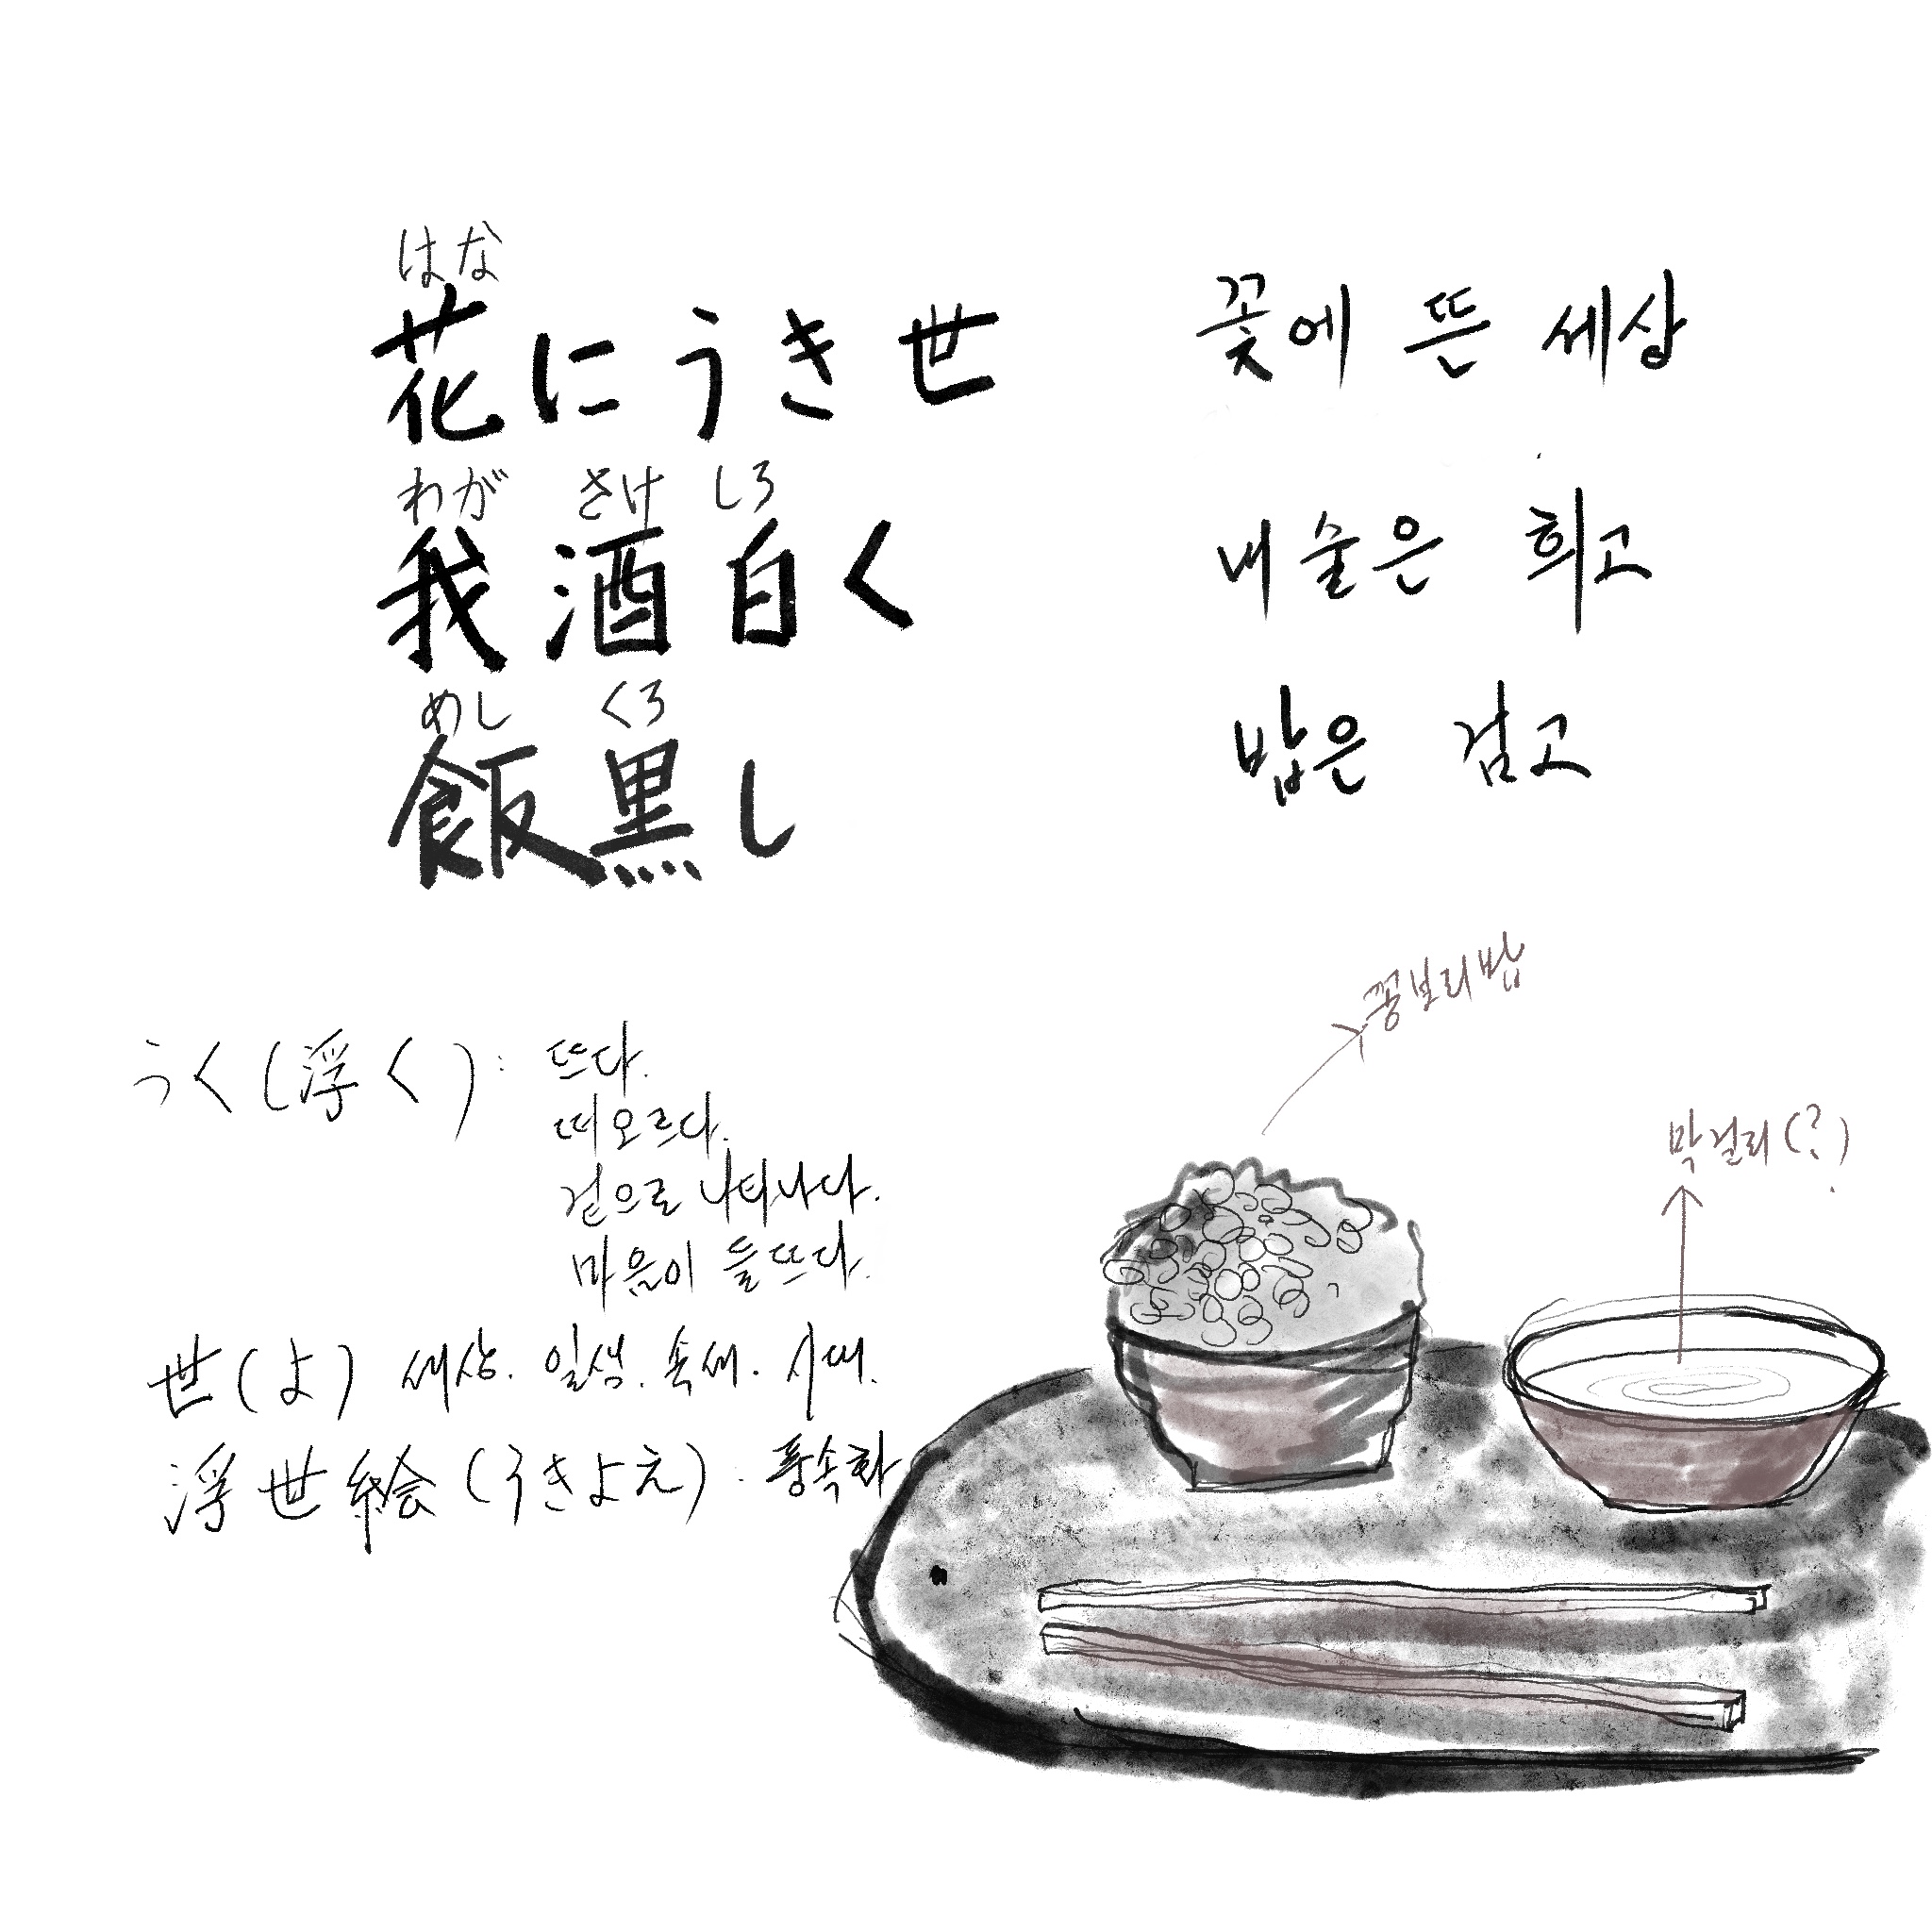 はな
花にうき世
わが さけ しろ
我酒白く
めし くろ
飯黒し
꽃에 뜬 세상
내 술은 희고
밥은 검고
꽁보리밥
막걸리(?)
うく(浮く): 뜨다.
떠오르다.
겉으로 나타나다.
마음이 들뜨다.
世(よ) 세상. 일생. 속세. 시대.
浮世絵(うきよえ): 풍속화